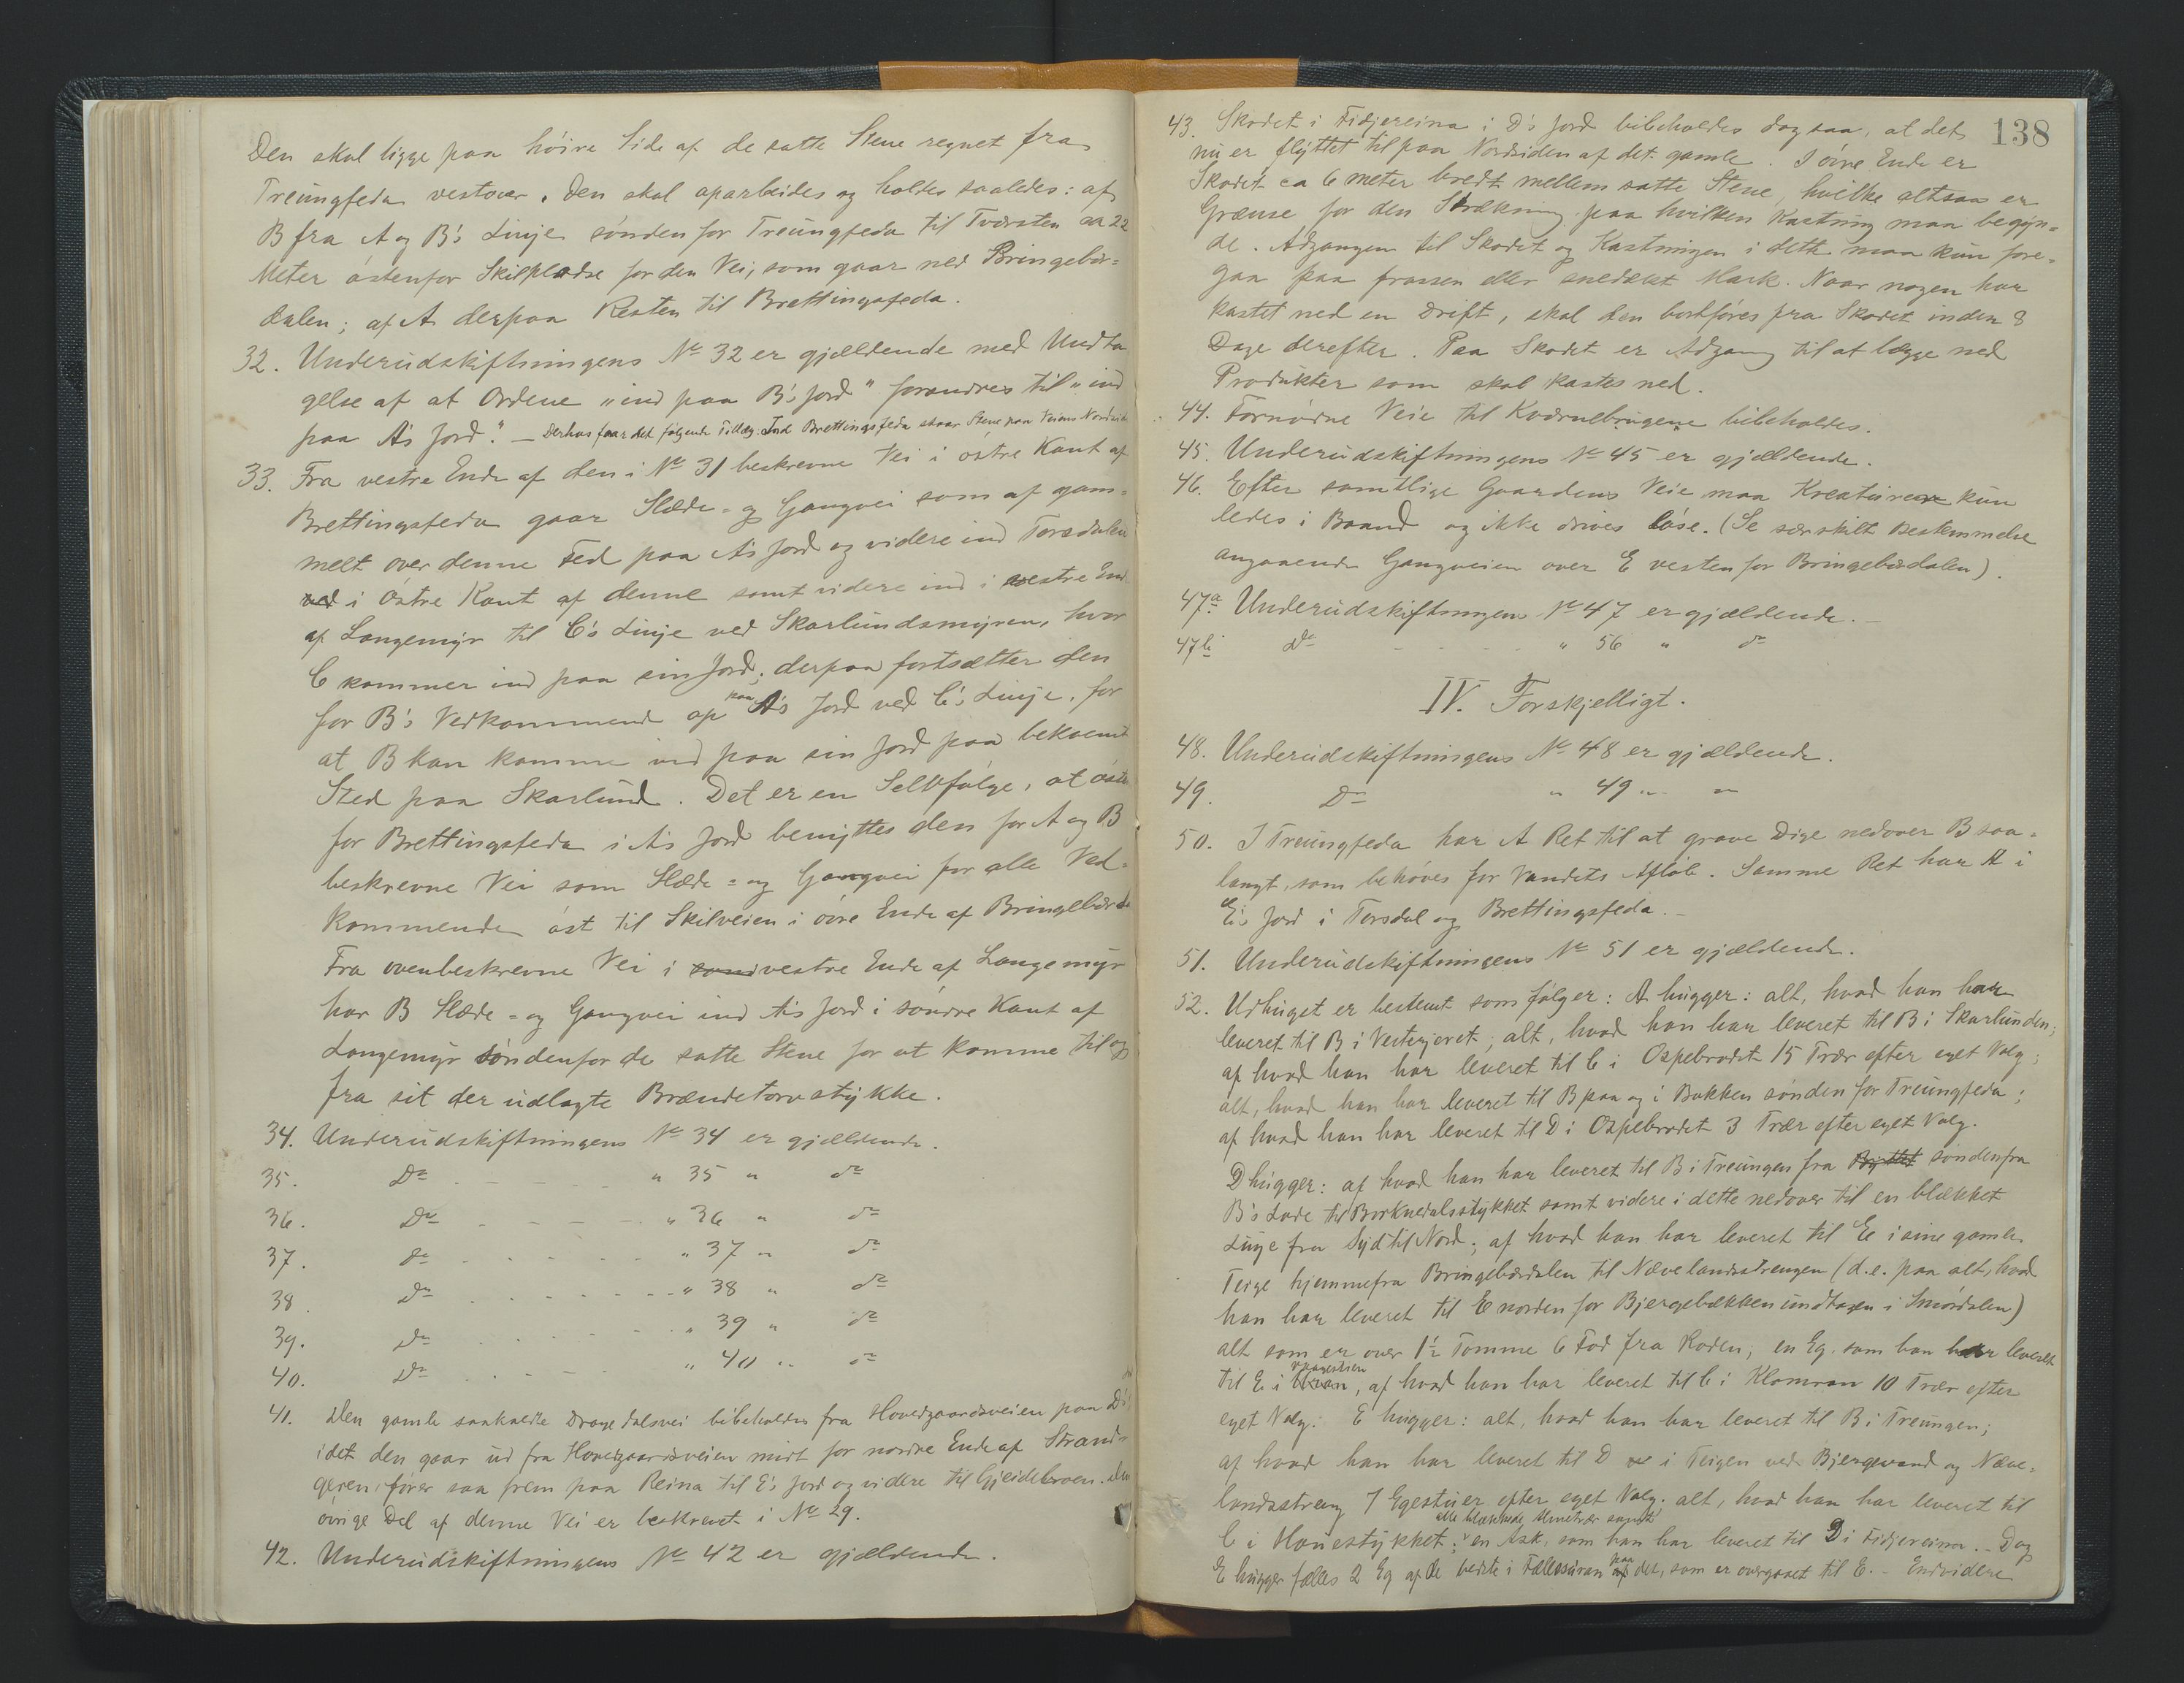 Den skal ligge paa høire Side af de satte Stene regnet fra
Treungfeda vestover. Den skal oparbeides og holdes saaledes: af
B fra A og B's Linje sønden for Treungfeda til Tvorsten ca 22
Meter østenfor Skilpladse for den Vei, som gaar ned Bringebær=
dalen; af A derpaa Resten til Brettingsfeda.
32. Underudskiftningens No 32 er gjældende med Undta
gelse af at Ordene "ind paa B's Jord" forandres til "ind
paa A's Jord." — Derhos faar det følgende Tillæg: Ind Brettingsfeda staar Stene paa Veiens Nordside
33. Fra vestre Ende af den i No 31 beskrevne Vei i østre Kant af
Brettingsfeda gaar Slæde= og Gangvei som af gam=
melt over denne Fed paa A's Jord og videre ind Torsdalen
ved i østre Kant af denne samt videre ind i vestre End
af Langemyr til C's Linje ved Skarlundsmyren, hvor
C kommer ind paa sin Jord; derpaa fortsætter den
for B's Vedkommende op paa A's Jord ved C's Linje, for
at B kan komme ind paa sin Jord paa bekvemt
Sted paa Skarlund. Det er en Selvfølge, at østen
for Brettingsfeda i A's Jord benyttes den for A og B
beskrevne Vei som Slæde= og Gangvei for alle Ved=
kommende øst til Skilveien i øvre Ende af Bringebærd
Fra ovenbeskrevne Vei i vestre Ende af Langemyr
har B Slæde= og Gangvei ind A's Jord i søndre Kant af
Langemyr søndenfor de satte Stene for at komme til og
fra sit der udlagte Brændetorvstykke.
34. Underudskiftningens No 34 er gjældende.
35. Do - - - - " 35 " do
36. Do - - - - " 36 " do
37. do - - - - " 37 " do
38. Do - - - - " 38 " do
39. Do - - - - " 39 " do
40. Do - - - - " 40 " do
41. Den gamle saakaldte Dragedalsvei bibeholdes fra Hovedgaardsveien paa D's
idet den gaar ud fra Hovedgaardsveien midt for nordre Ende af Strand=
gjeren, fører saa frem paa Reina til E's Jord og videre til Gjeidebroen. Den
øvrige Del af denne Vei er beskrevet i No 29.
42. Underudskiftningens No 42 er gjældende.
138
43. Skodet i Fidjereina i D's Jord bibeholdes dog saa, at det
nu er flyttet til paa Nordsiden af det gamle. I øvre Ende er
Skodet ca 6 meter bredt mellem satte Stene, hvilke altsaa er
Grænse for den Strækning paa hvilken Kastning maa begyn=
de. Adgangen til Skodet og Kastningen i dette maa kun fore=
gaa paa frossen eller snedækt Mark. Naar nogen har
kastet ned en Drift, skal den bortføres fra Skodet inden 8
Dage derefter. Paa Skodet er Adgang til at lægge ned
Produkter som skal kastes ned.
44. Fornødne Veie til Kværnebrugene bibeholdes.
45. Underudskiftningens No 45 er gjældende.
46. Efter samtlige Gaardens Veie maa Kreaturene kun
ledes i Baand og ikke drives løse. (Se særskilt Bestemmelse
angaaende Gangveien over E vesten for Bringebærdalen).
47a. Underudskiftningens No 47 er gjældende. —
47b. Do - - - - " 56 " do
IV. Forskjelligt.
48. Underudskiftningens No 48 er gjældende.
49. Do " 49 " "
50. I Treungfeda har A Ret til at grave Dige nedover B saa=
langt, som behøves for Vandets Afløb. Samme Ret har A i
E's Jord i Torsdal og Brettingsfeda. —
51. Underudskiftningens No 51 er gjældende.
52. Udhuget er bestemt som følger: A hugger: alt, hvad han har
leveret til B i Vestergjeret; alt, hvad han har leveret til B i Skarlunden;
af hvad han har leveret til C i Ospebrodet 15 Trær efter eget Valg;
alt, hvad han har leveret til B paa og i Bakken sønden for Treungfeda;
af hvad han har leveret til D i Ospebrodet 3 Trær efter eget Valg.
D hugger: af hvad han har leveret til B i Treungen fra søndenfra
B's Lade til Birknedalsstykket samt videre i dette nedover til en blækket
Linje fra Syd til Nord; af hvad han har leveret til E i sine gamle
Teige hjemmefra Bringebærdalen til Nævelandsstrengen (d.e. paa alt, hvad
han har leveret til E norden for Bjergebækken undtagen i Smørdalen)
alt som er over 1½ Tomme 6 Fod fra Roden; en Eg. som han har leveret
til E i , af hvad han har leveret til C i Klomran 10 Trær efter
eget Valg. E hugger: alt, hvad han har leveret til B i Treungen;
af hvad han har leveret til D i Teigen ved Bjergevand og Næve=
landsstreng 7 Egestuer efter eget Valg; alt, hvad han har leveret til
C i Hauestykket; alle blækkede Almetrær samt en Ask, som han har leveret til D i Fidjereina. — D og
E hugger fælles 2 Eg af de bedste i Fællesuran paa det, som er overgaaet til E. — Endvidere